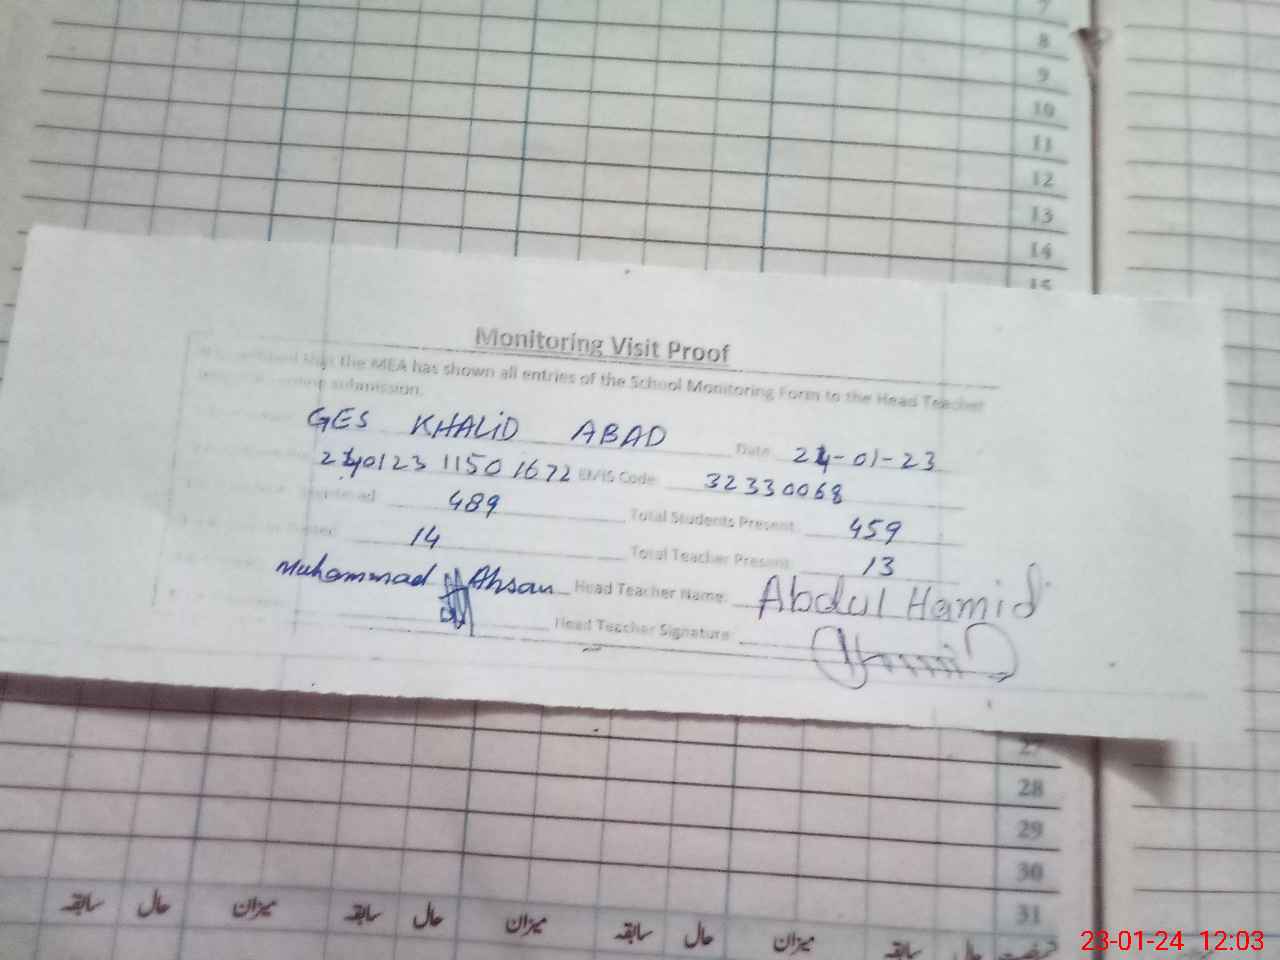 7
8
9
10
11
12
13
14
15
Monitoring Visit Proof
that the MEA has shown all entries of the School Monitoring Form to the Head Teacher
submission.
GES KHALID ABAD Date 24-01-23
EMIS Code 32330068
489 Total Students Present 459
14 Total Teacher Present 13
Muhammad Ahsan Head Teacher Name: Abdul Hamid
Head Teacher Signature:
27
28
29
30
31
سابقہ حال میزان سابقہ حال میزان سابقہ حال میزان سابقہ حال
23-01-24 12:03